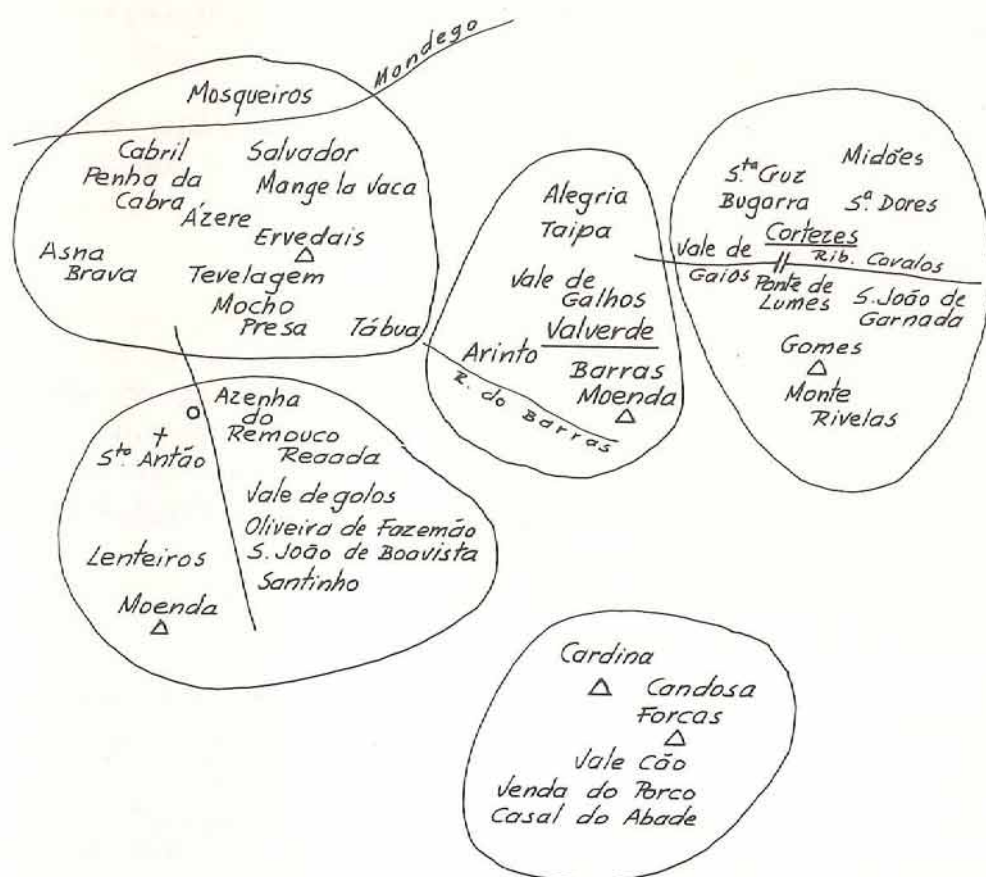 Mondego
Mosqueiros
Cabril
Salvador
Penha da
Cabra
Mange la Vaca
Ázere
Ervedais
Asna
Brava
Tevelagem
Mocho
Presa
Tábua
Alegria
Taipa
Vale de
Galhos
Valverde
Arinto
Barras
Moenda
R. do Barras
Midões
S.ta Gruz
Bugarra
S.a Dores
Cortezes
Rib. Cavalos
Vale de
Gaios
Ponte de
Lumes
S. João de
Garnada
Gomes
Monte
Rivelas
Azenha
do
Remouco
Regada
S.to Antão
Vale de golos
Oliveira de Fazemão
S. João de Boavista
Santinho
Lenteiros
Moenda
Cardina
Candosa
Forcas
Vale Cão
Venda do Porco
Casal do Abade